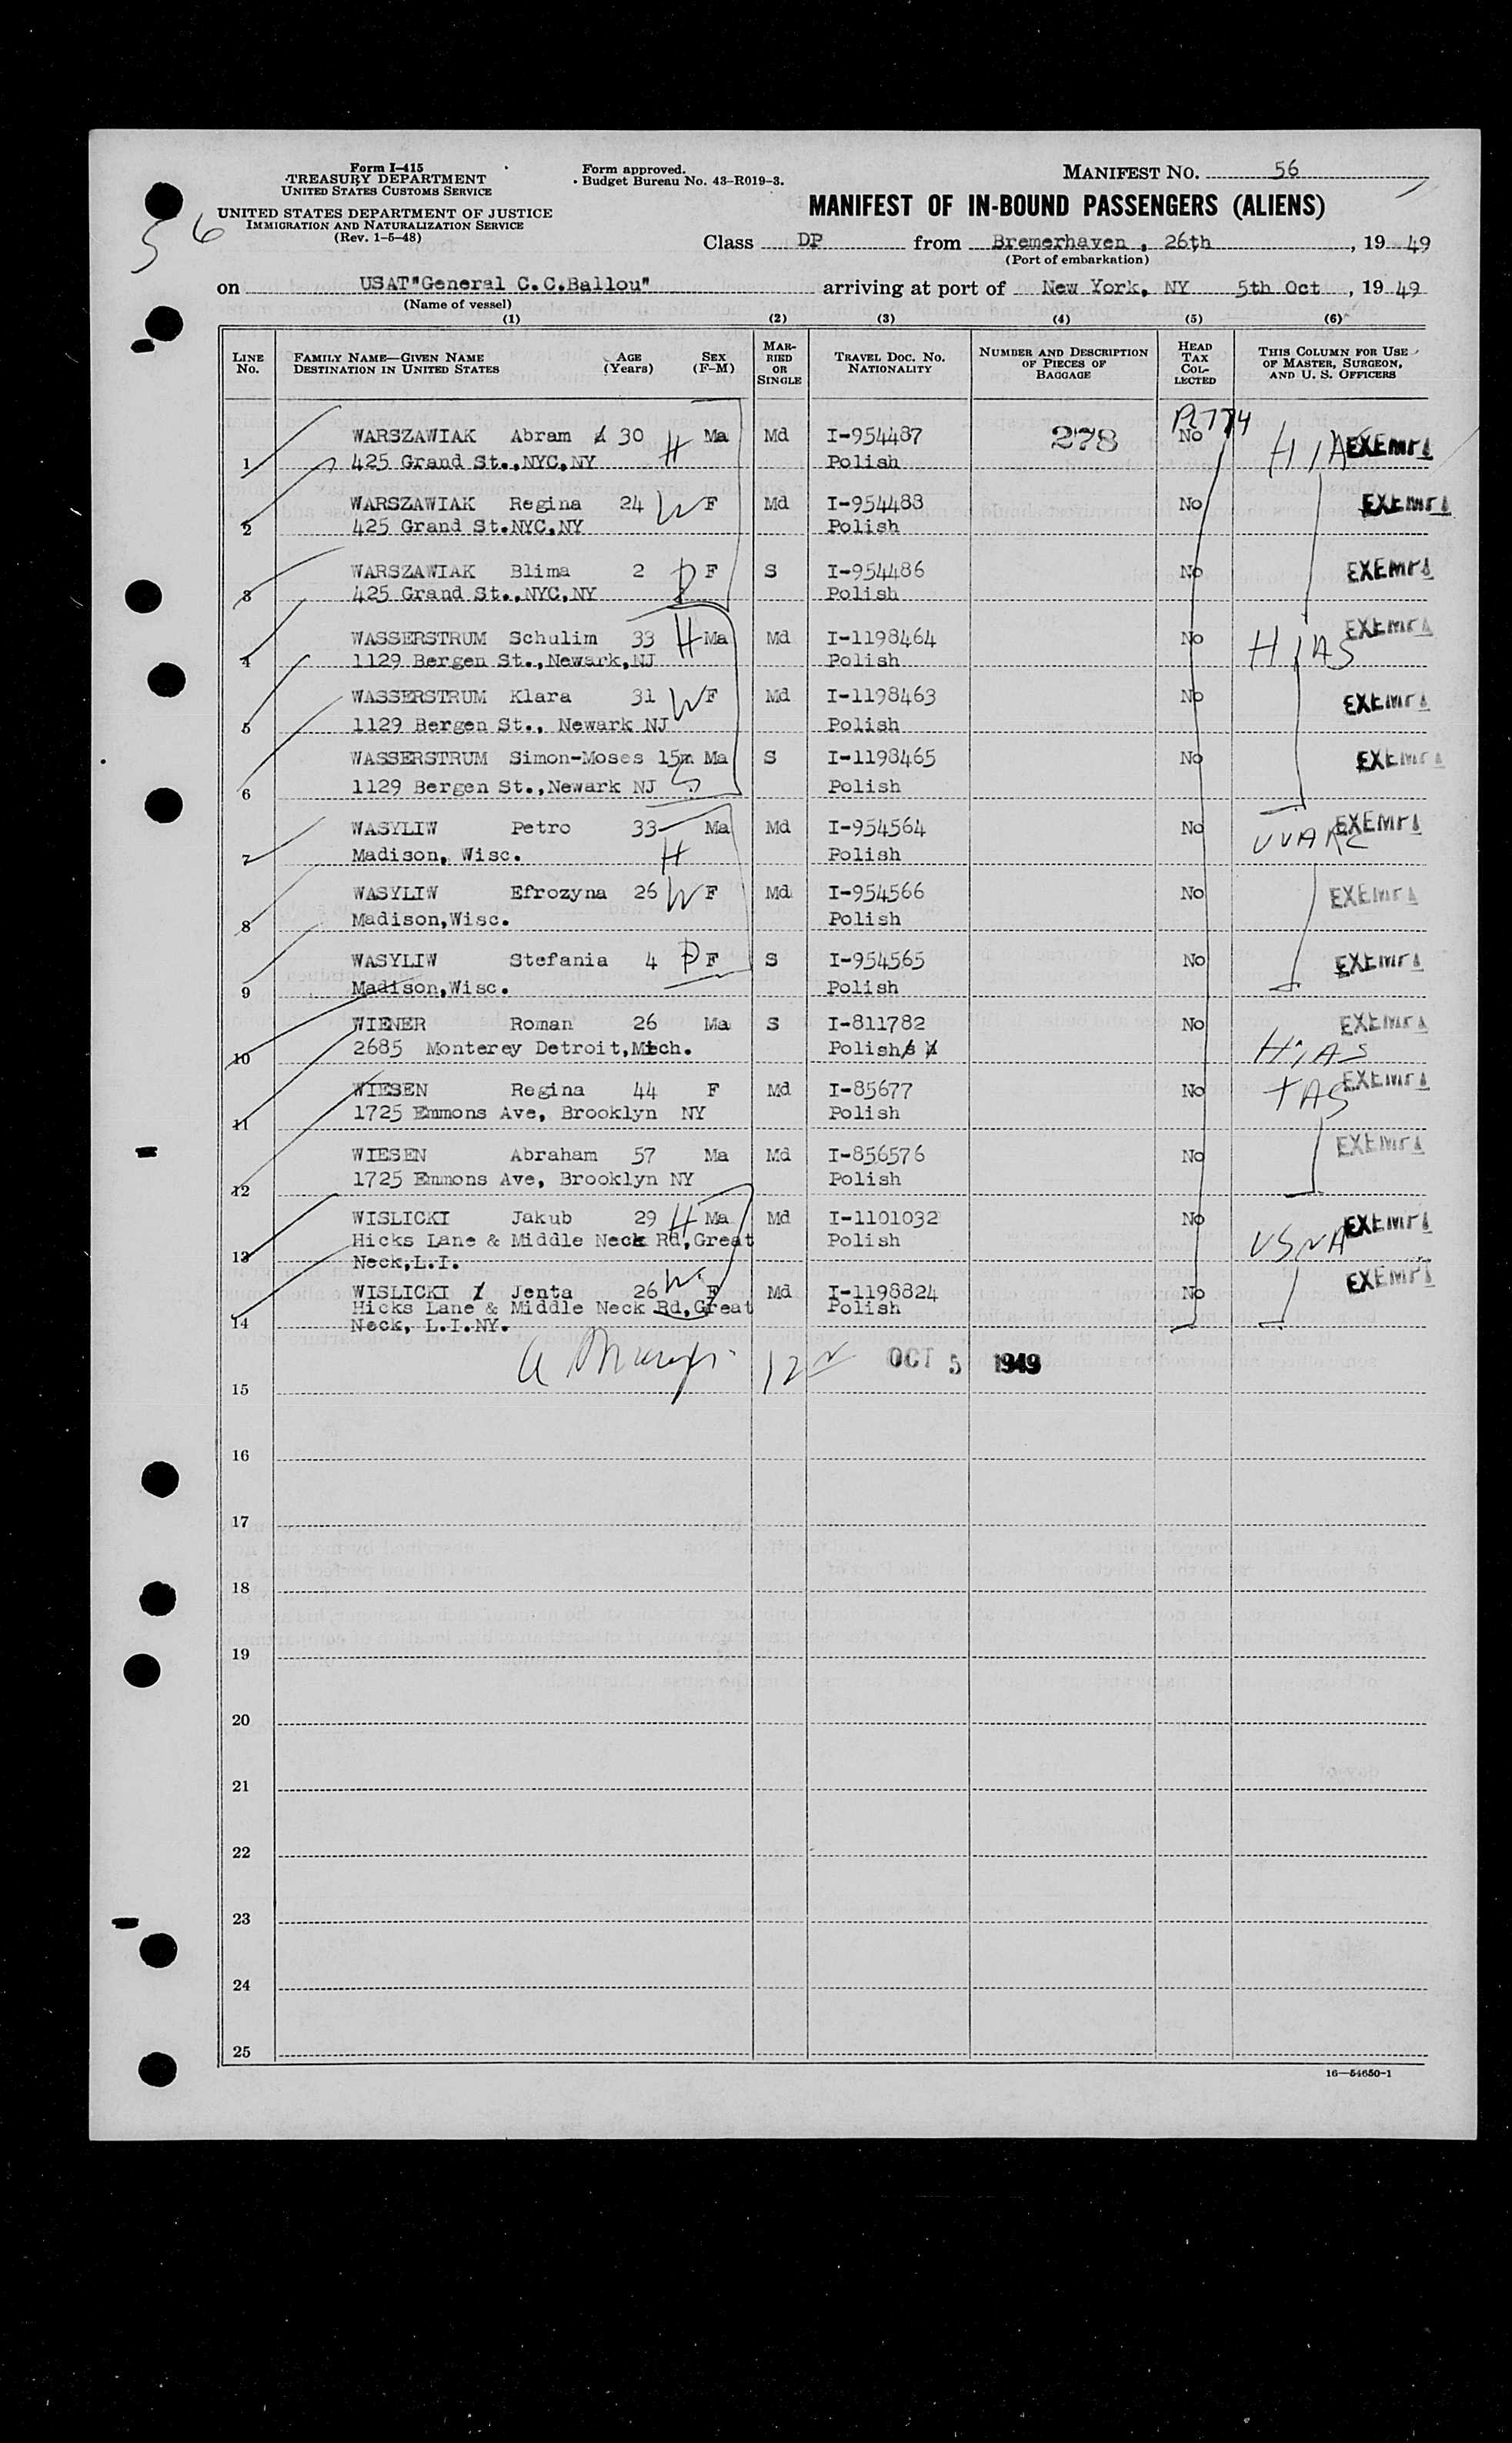 56
Form I-415
TREASURY DEPARTMENT
UNITED STATES CUSTOMS SERVICE
UNITED STATES DEPARTMENT OF JUSTICE
IMMIGRATION AND NATURALIZATION SERVICE
(Rev. 1-5-48)
Form approved.
Budget Bureau No. 43-R019-3.
MANIFEST NO. 56
MANIFEST OF IN-BOUND PASSENGERS (ALIENS)
Class DP from Bremerhaven, 26th, 19 49
(Port of embarkation)
on USAT"General C.C.Ballou" arriving at port of New York, NY 5th Oct, 19 49
(Name of vessel)
(1) (2) (3) (4) (5) (6)
LINE No. FAMILY NAME—GIVEN NAME DESTINATION IN UNITED STATES AGE (Years) SEX (F-M) MARRIED OR SINGLE TRAVEL DOC. NO. NATIONALITY NUMBER AND DESCRIPTION OF PIECES OF BAGGAGE HEAD TAX COLLECTED THIS COLUMN FOR USE OF MASTER, SURGEON, AND U. S. OFFICERS
WARSZAWIAK Abram 30 H Ma Md I-954487 278 No HIAS EXEMPT
1 425 Grand St.,NYC,NY Polish
WARSZAWIAK Regina 24 W F Md I-954488 No EXEMPT
2 425 Grand St.NYC,NY Polish
WARSZAWIAK Blima 2 D F S I-954486 No EXEMPT
3 425 Grand St.,NYC,NY Polish
WASSERSTRUM Schulim 33 H Ma Md I-1198464 No HIAS EXEMPT
4 1129 Bergen St.,Newark,NJ Polish
WASSERSTRUM Klara 31 W F Md I-1198463 No EXEMPT
5 1129 Bergen St., Newark NJ Polish
WASSERSTRUM Simon-Moses 15m Ma S I-1198465 No EXEMPT
6 1129 Bergen St.,Newark NJ S Polish
WASYLIW Petro 33 Ma Md I-954564 No EXEMPT
7 Madison, Wisc. H Polish
WASYLIW Efrozyna 26 W F Md I-954566 No EXEMPT
8 Madison,Wisc. Polish
WASYLIW Stefania 4 D F S I-954565 No EXEMPT
9 Madison,Wisc. Polish
WIENER Roman 26 Ma S I-811782 No HIAS EXEMPT
10 2685 Monterey Detroit,Mich. Polish
WIESEN Regina 44 F Md I-85677 No EXEMPT
11 1725 Emmons Ave, Brooklyn NY Polish
WIESEN Abraham 57 Ma Md I-856576 No EXEMPT
12 1725 Emmons Ave, Brooklyn NY Polish
WISLICKI Jakub 29 H Ma Md I-1101032 No USNA EXEMPT
Hicks Lane & Middle Neck Rd,Great Polish
13 Neck,L.I.
WISLICKI Jenta 26 W F Md I-1198824 No EXEMPT
Hicks Lane & Middle Neck Rd,Great Polish
14 Neck, L.I.NY.
OCT 5 1949
15
16
17
18
19
20
21
22
23
24
25
16—54650-1